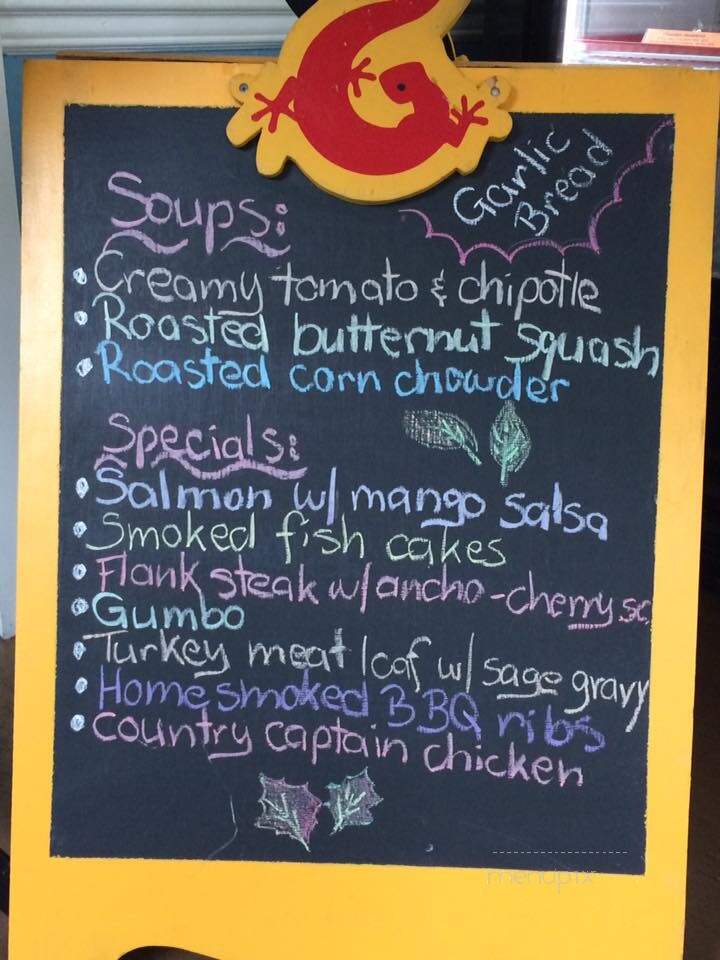 Garlic
Bread
Soups:
• Creamy tomato & chipotle
• Roasted butternut squash
• Roasted corn chowder
Specials:
• Salmon w/ mango salsa
• Smoked fish cakes
• Flank steak w/ ancho-cherry sc
• Gumbo
• Turkey meat loaf w/ sage gravy
• Home smoked BBQ ribs
• Country captain chicken
menupix